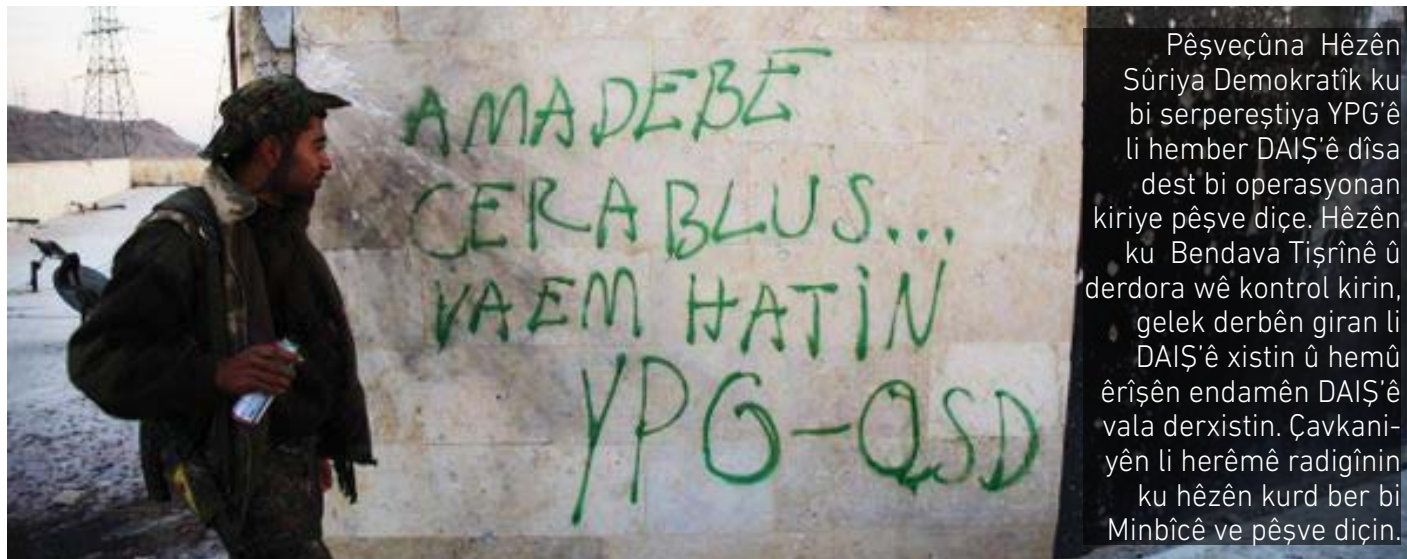 AMADEBÊ
CERABLUS...
VA EM HATİN
YPG-QSD
Pêşveçûna Hêzên
Sûriya Demokratîk ku
bi serpereştiya YPG'ê
li hember DAIŞ'ê dîsa
dest bi operasyonan
kiriye pêşve diçe. Hêzên
ku Bendava Tişrînê û
derdora wê kontrol kirin,
gelek derbên giran li
DAIŞ'ê xistin û hemû
êrîşên endamên DAIŞ'ê
vala derxistin. Çavkani-
yên li herêmê radigînin
ku hêzên kurd ber bi
Minbîcê ve pêşve diçin.